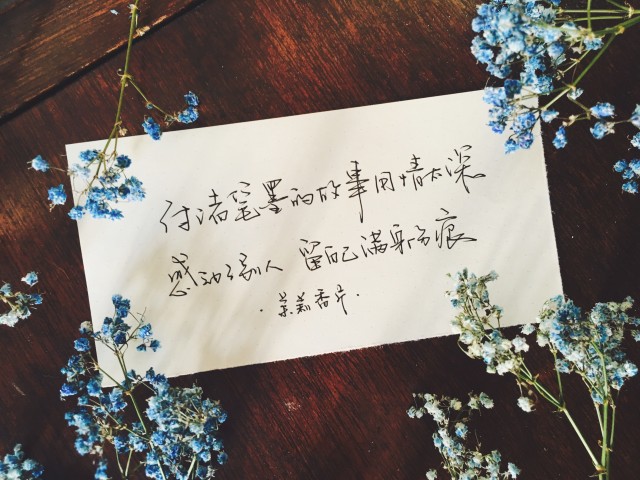 付诸笔墨的故事用情太深
感动了别人 留自己满身伤痕
· 茉莉香片 ·